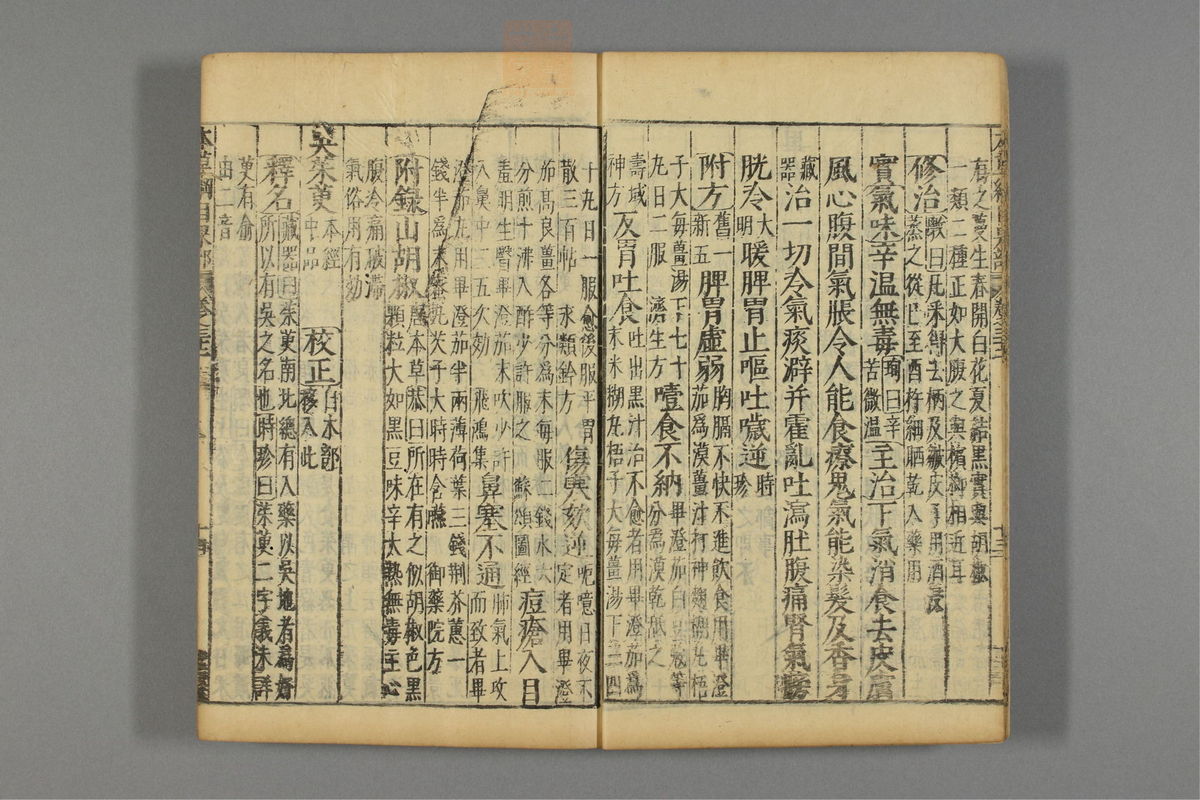 本草綱目果部 卷三十二 十三
有之蔓生春開白花夏結黑實與胡椒
一類二種正如大腹之與檳榔相近耳
修治 斅曰凡采得去柄及皺皮了用酒浸
蒸之從巳至酉杵細晒乾入藥用
實氣味辛温無毒 珣曰辛
苦微温 主治下氣消食去皮膚
風心腹間氣脹令人能食療鬼氣能染髮及香身
藏器 治一切冷氣痰澼并霍亂吐瀉肚腹痛腎氣膀
胱冷 大明 暖脾胃止嘔吐噦逆 時珍
附方 舊一
新五 脾胃虛弱 胸膈不快不進飲食用畢澄
茄爲漠薑汁打神麴糊丸梧
子大每薑湯下七十
九日二服 濟生方 噎食不納 畢澄茄白豆蔻等
分爲漠乾䑛之
壽域
神方 反胃吐食 吐出黑汁治不愈者用畢澄茄爲
末米糊丸梧子大每薑湯下三四十
十九日一服愈後服平胃
散三百帖 永類鈐方 傷寒欬逆 呃噫日夜不
定者用畢澄
茄高良薑各等分爲末每服二錢水六
分煎十沸入酢少許服之 蘇頌圖經 痘瘡入目
羞明生瞖畢澄茄末吹少許
入鼻中三五次効 飛鴻集 鼻塞不通 肺氣上攻
而致者畢
澄茄丸用畢澄茄半兩薄荷葉三錢荆芥蕙一
錢半爲末蜜丸芡子大時時含嚥 御藥院方
附錄山胡椒 唐本草恭曰所在有之似胡椒色黑
顆粒大如黑豆味辛大熱無毒主心
腹冷痛破滯
氣俗用有効
吳茱萸 本經
中品 校正 自木部
移入此
釋名 藏器曰茱萸南北總有入藥以吳地者爲好
所以有吳之名也時珍曰茱萸二字義未詳
萸有俞
由二音
本草綱目果部 卷三十二 十四